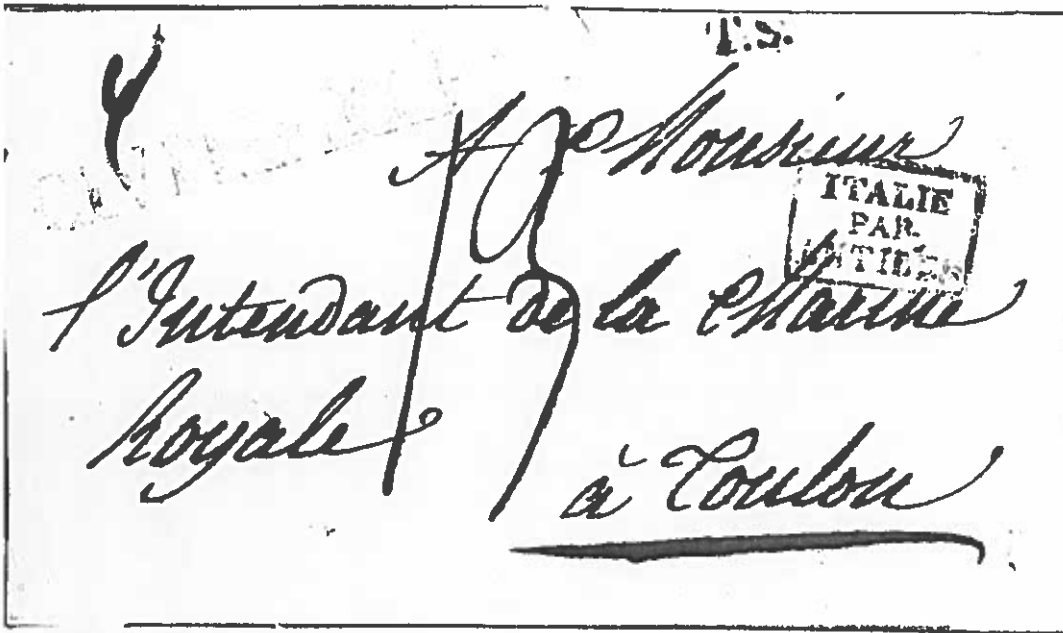 T.S.
A Monsieur
ITALIE
PAR
ANTIBES
l'Intendant de la Marine
Royale
à Toulon